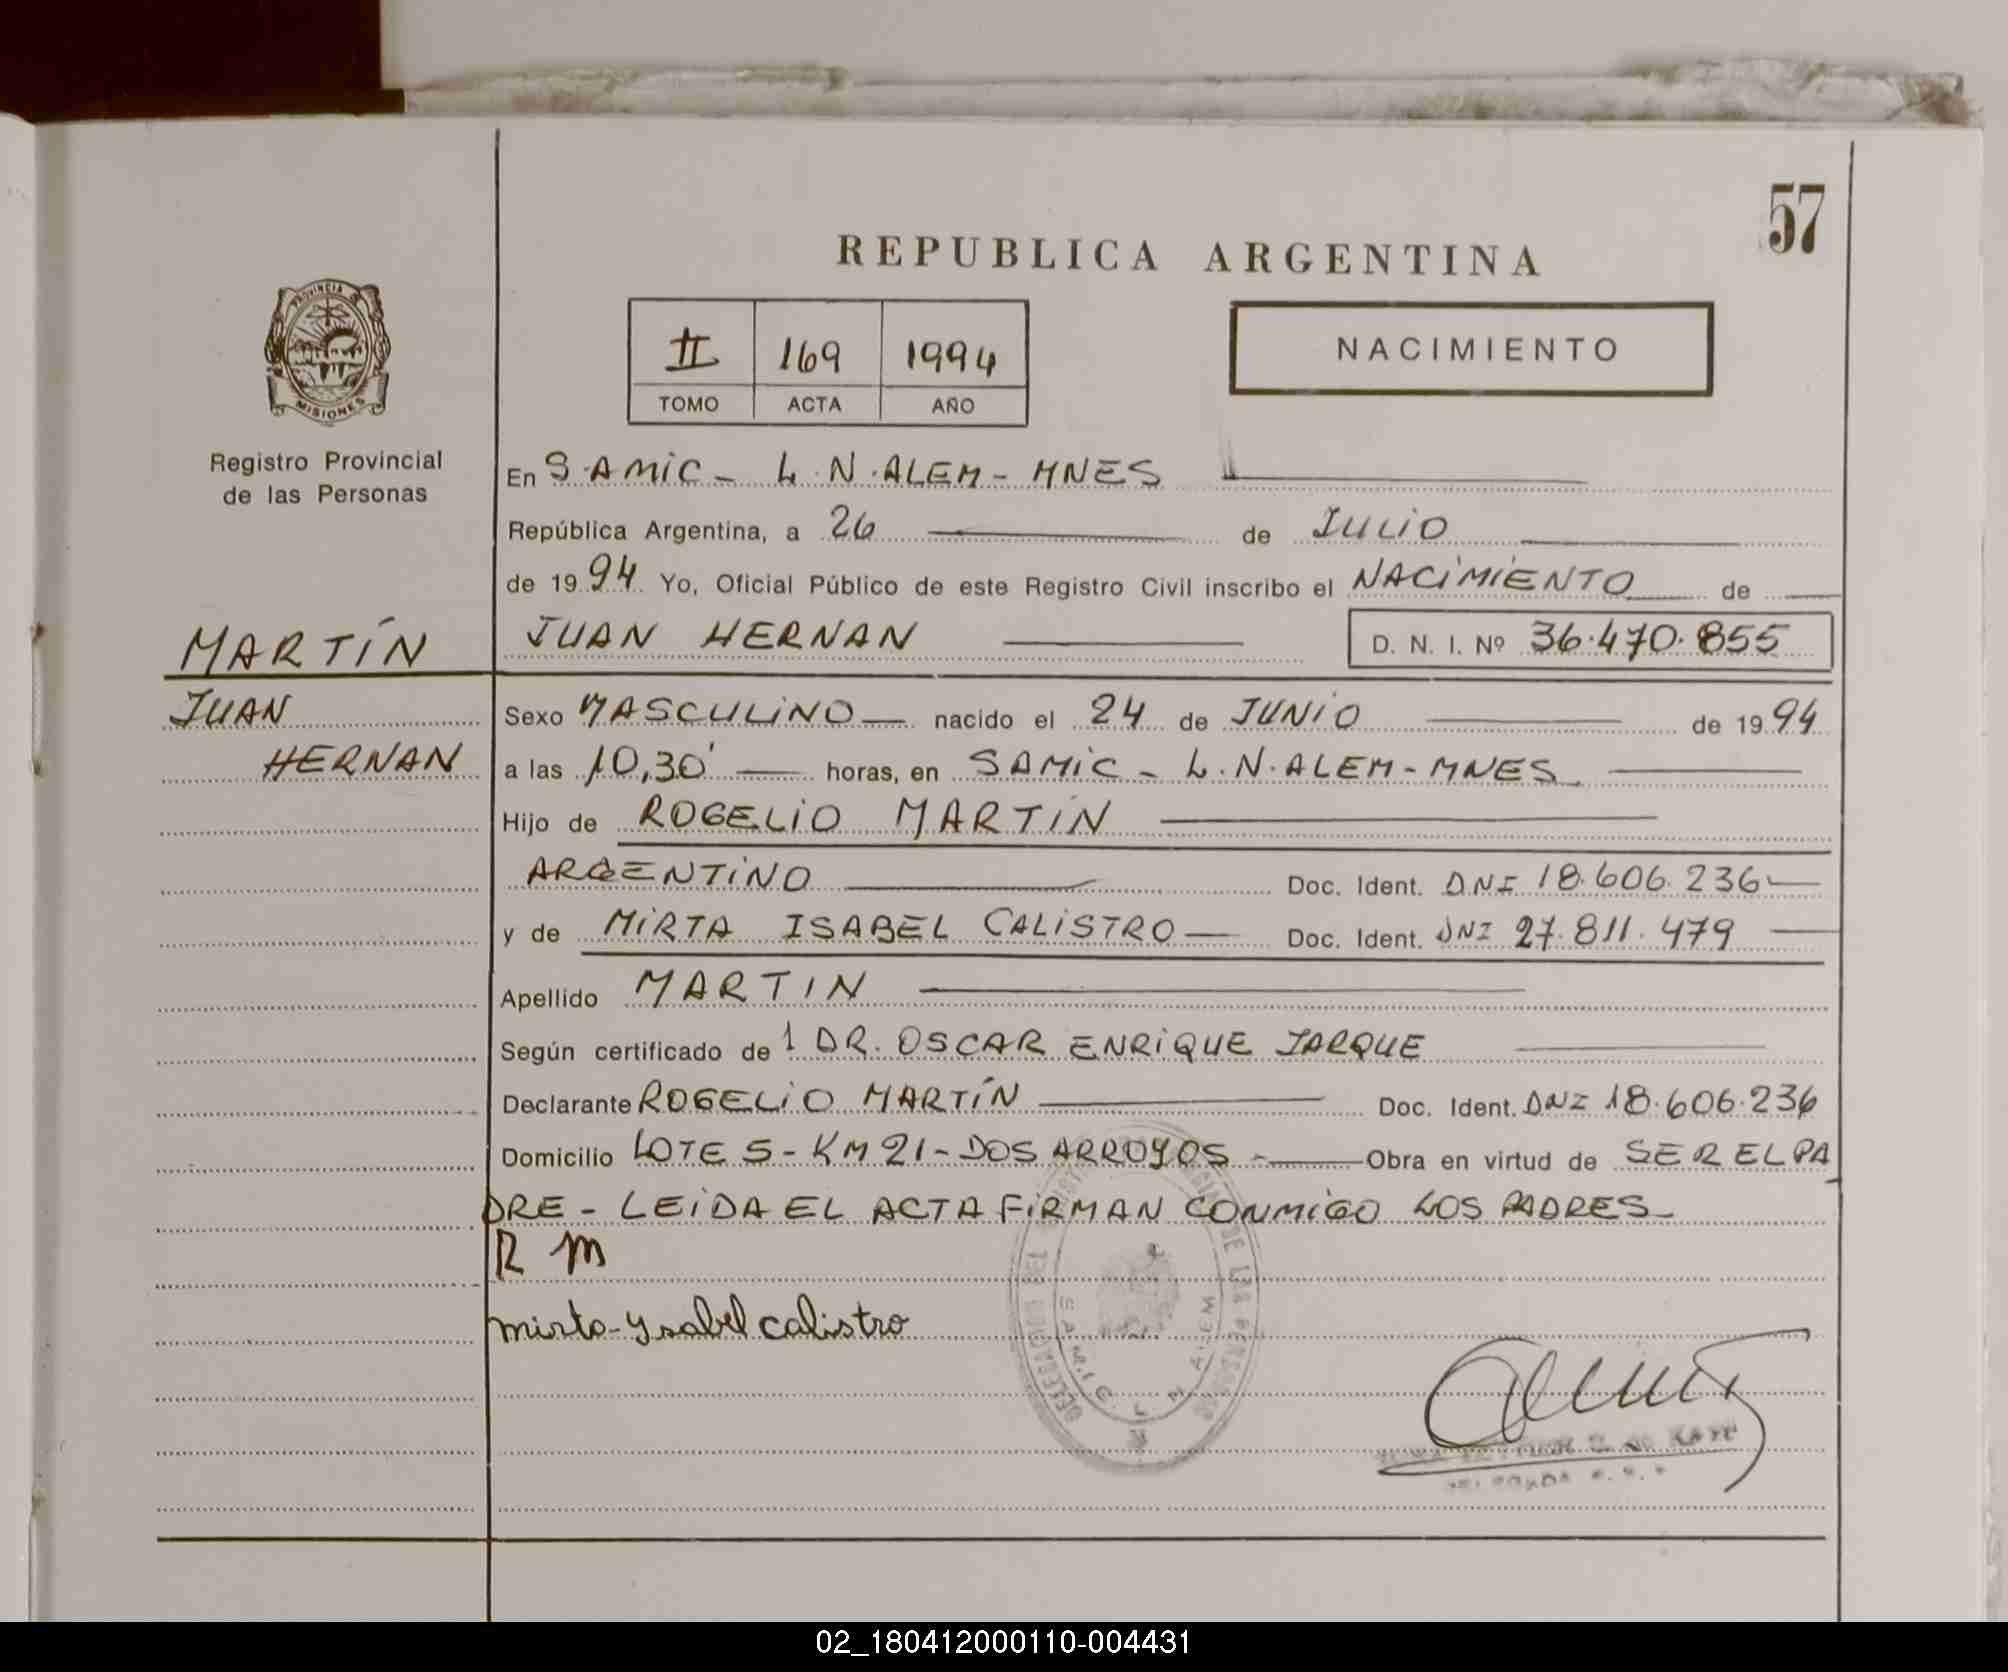 57
REPUBLICA ARGENTINA
PROVINCIA DE
MISIONES
Registro Provincial
de las Personas
II 169 1994
TOMO ACTA AÑO
NACIMIENTO
En S.AMIC - L.N.ALEM - MNES
República Argentina, a 26 de JULIO
de 1994 Yo, Oficial Público de este Registro Civil inscribo el NACIMIENTO de
MARTÍN
JUAN HERNAN D. N. I. Nº 36.470.855
JUAN
HERNAN
Sexo MASCULINO nacido el 24 de JUNIO de 1994
a las 10,30' horas, en SAMIC - L.N.ALEM - MNES
Hijo de ROGELIO MARTÍN
ARGENTINO Doc. Ident. DNI 18.606.236
y de MIRTA ISABEL CALISTRO Doc. Ident. DNI 27.811.479
Apellido MARTIN
Según certificado de 1 DR. OSCAR ENRIQUE JARQUE
Declarante ROGELIO MARTÍN Doc. Ident. DNI 18.606.236
Domicilio LOTE 5 - KM 21 - DOS ARROYOS - Obra en virtud de SER EL PA
DRE - LEIDA EL ACTA FIRMAN CONMIGO LOS PADRES
R m
mirta Ysabel calistro
DE LAS PERSONAS
02_180412000110-004431